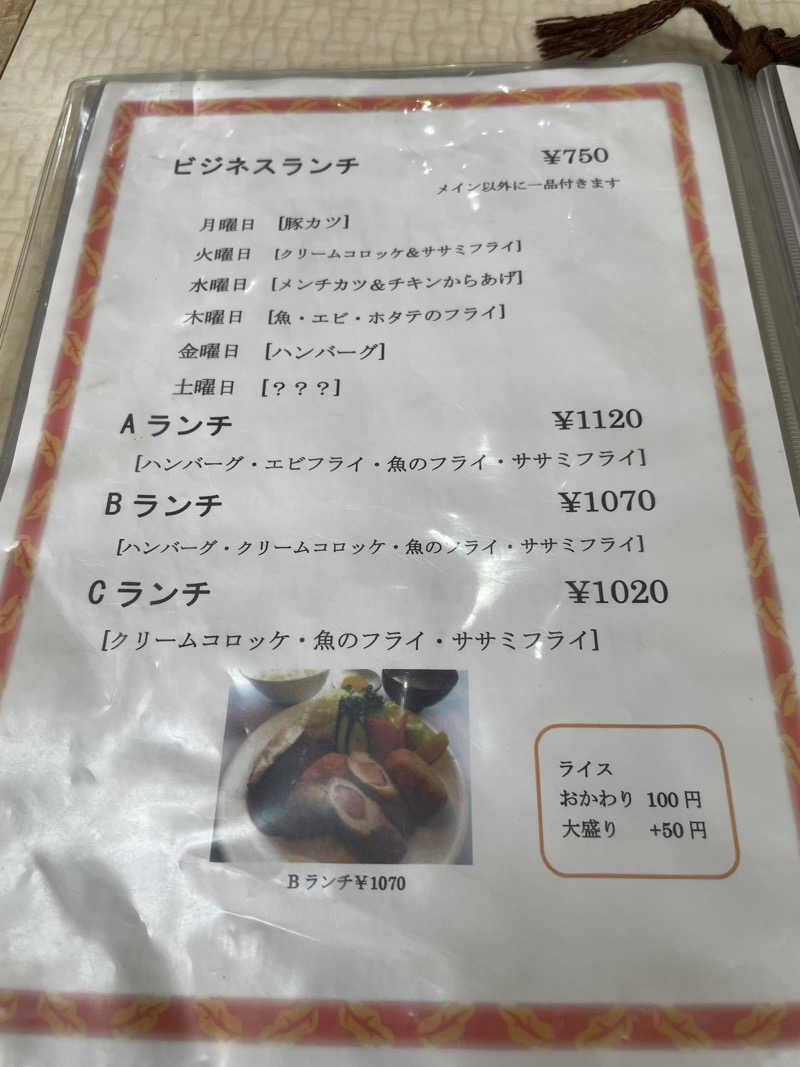 ビジネスランチ ¥750
メイン以外に一品付きます
月曜日 [豚カツ]
火曜日 [クリームコロッケ&ササミフライ]
水曜日 [メンチカツ&チキンからあげ]
木曜日 [魚・エビ・ホタテのフライ]
金曜日 [ハンバーグ]
土曜日 [???]
Aランチ ¥1120
[ハンバーグ・エビフライ・魚のフライ・ササミフライ]
Bランチ ¥1070
[ハンバーグ・クリームコロッケ・魚のフライ・ササミフライ]
Cランチ ¥1020
[クリームコロッケ・魚のフライ・ササミフライ]
ライス
おかわり 100円
大盛り +50円
Bランチ¥1070